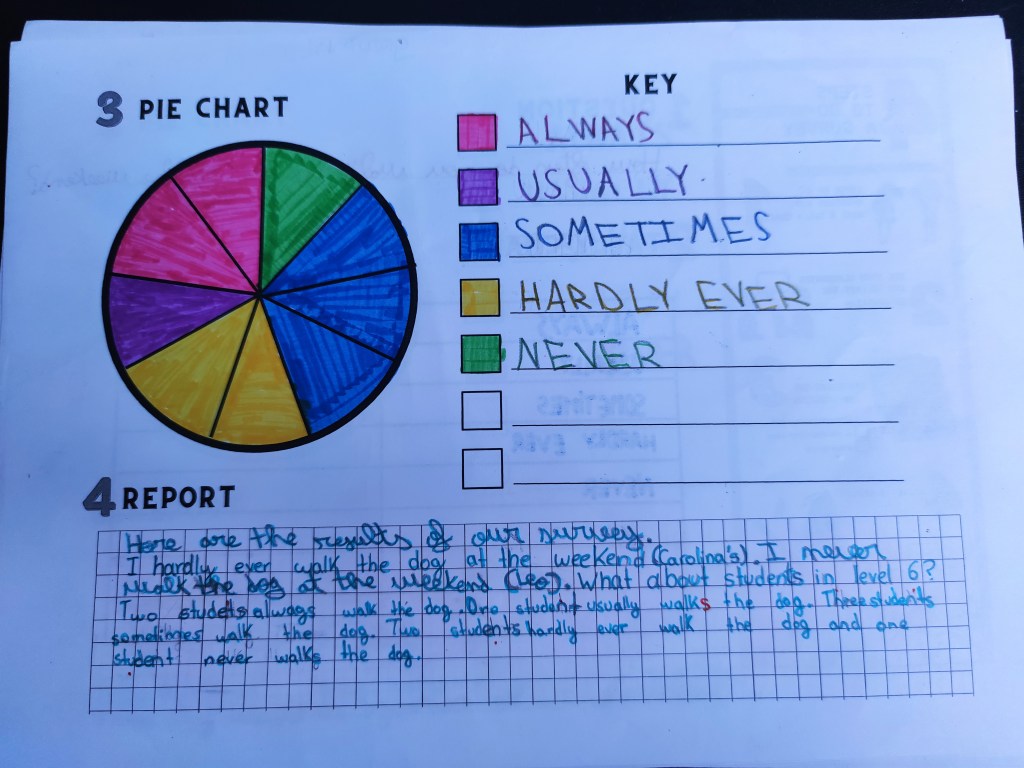 3 PIE CHART
KEY
ALWAYS
USUALLY
SOMETIMES
HARDLY EVER
NEVER
4 REPORT
Here are the results of our survey.
I hardly ever walk the dog at the weekend (Carolina's). I never
walk the dog at the weekend (Leo). What about students in level 6?
Two students always walk the dog. One student usually walks the dog. Three students
sometimes walk the dog. Two students hardly ever walk the dog and one
student never walks the dog.